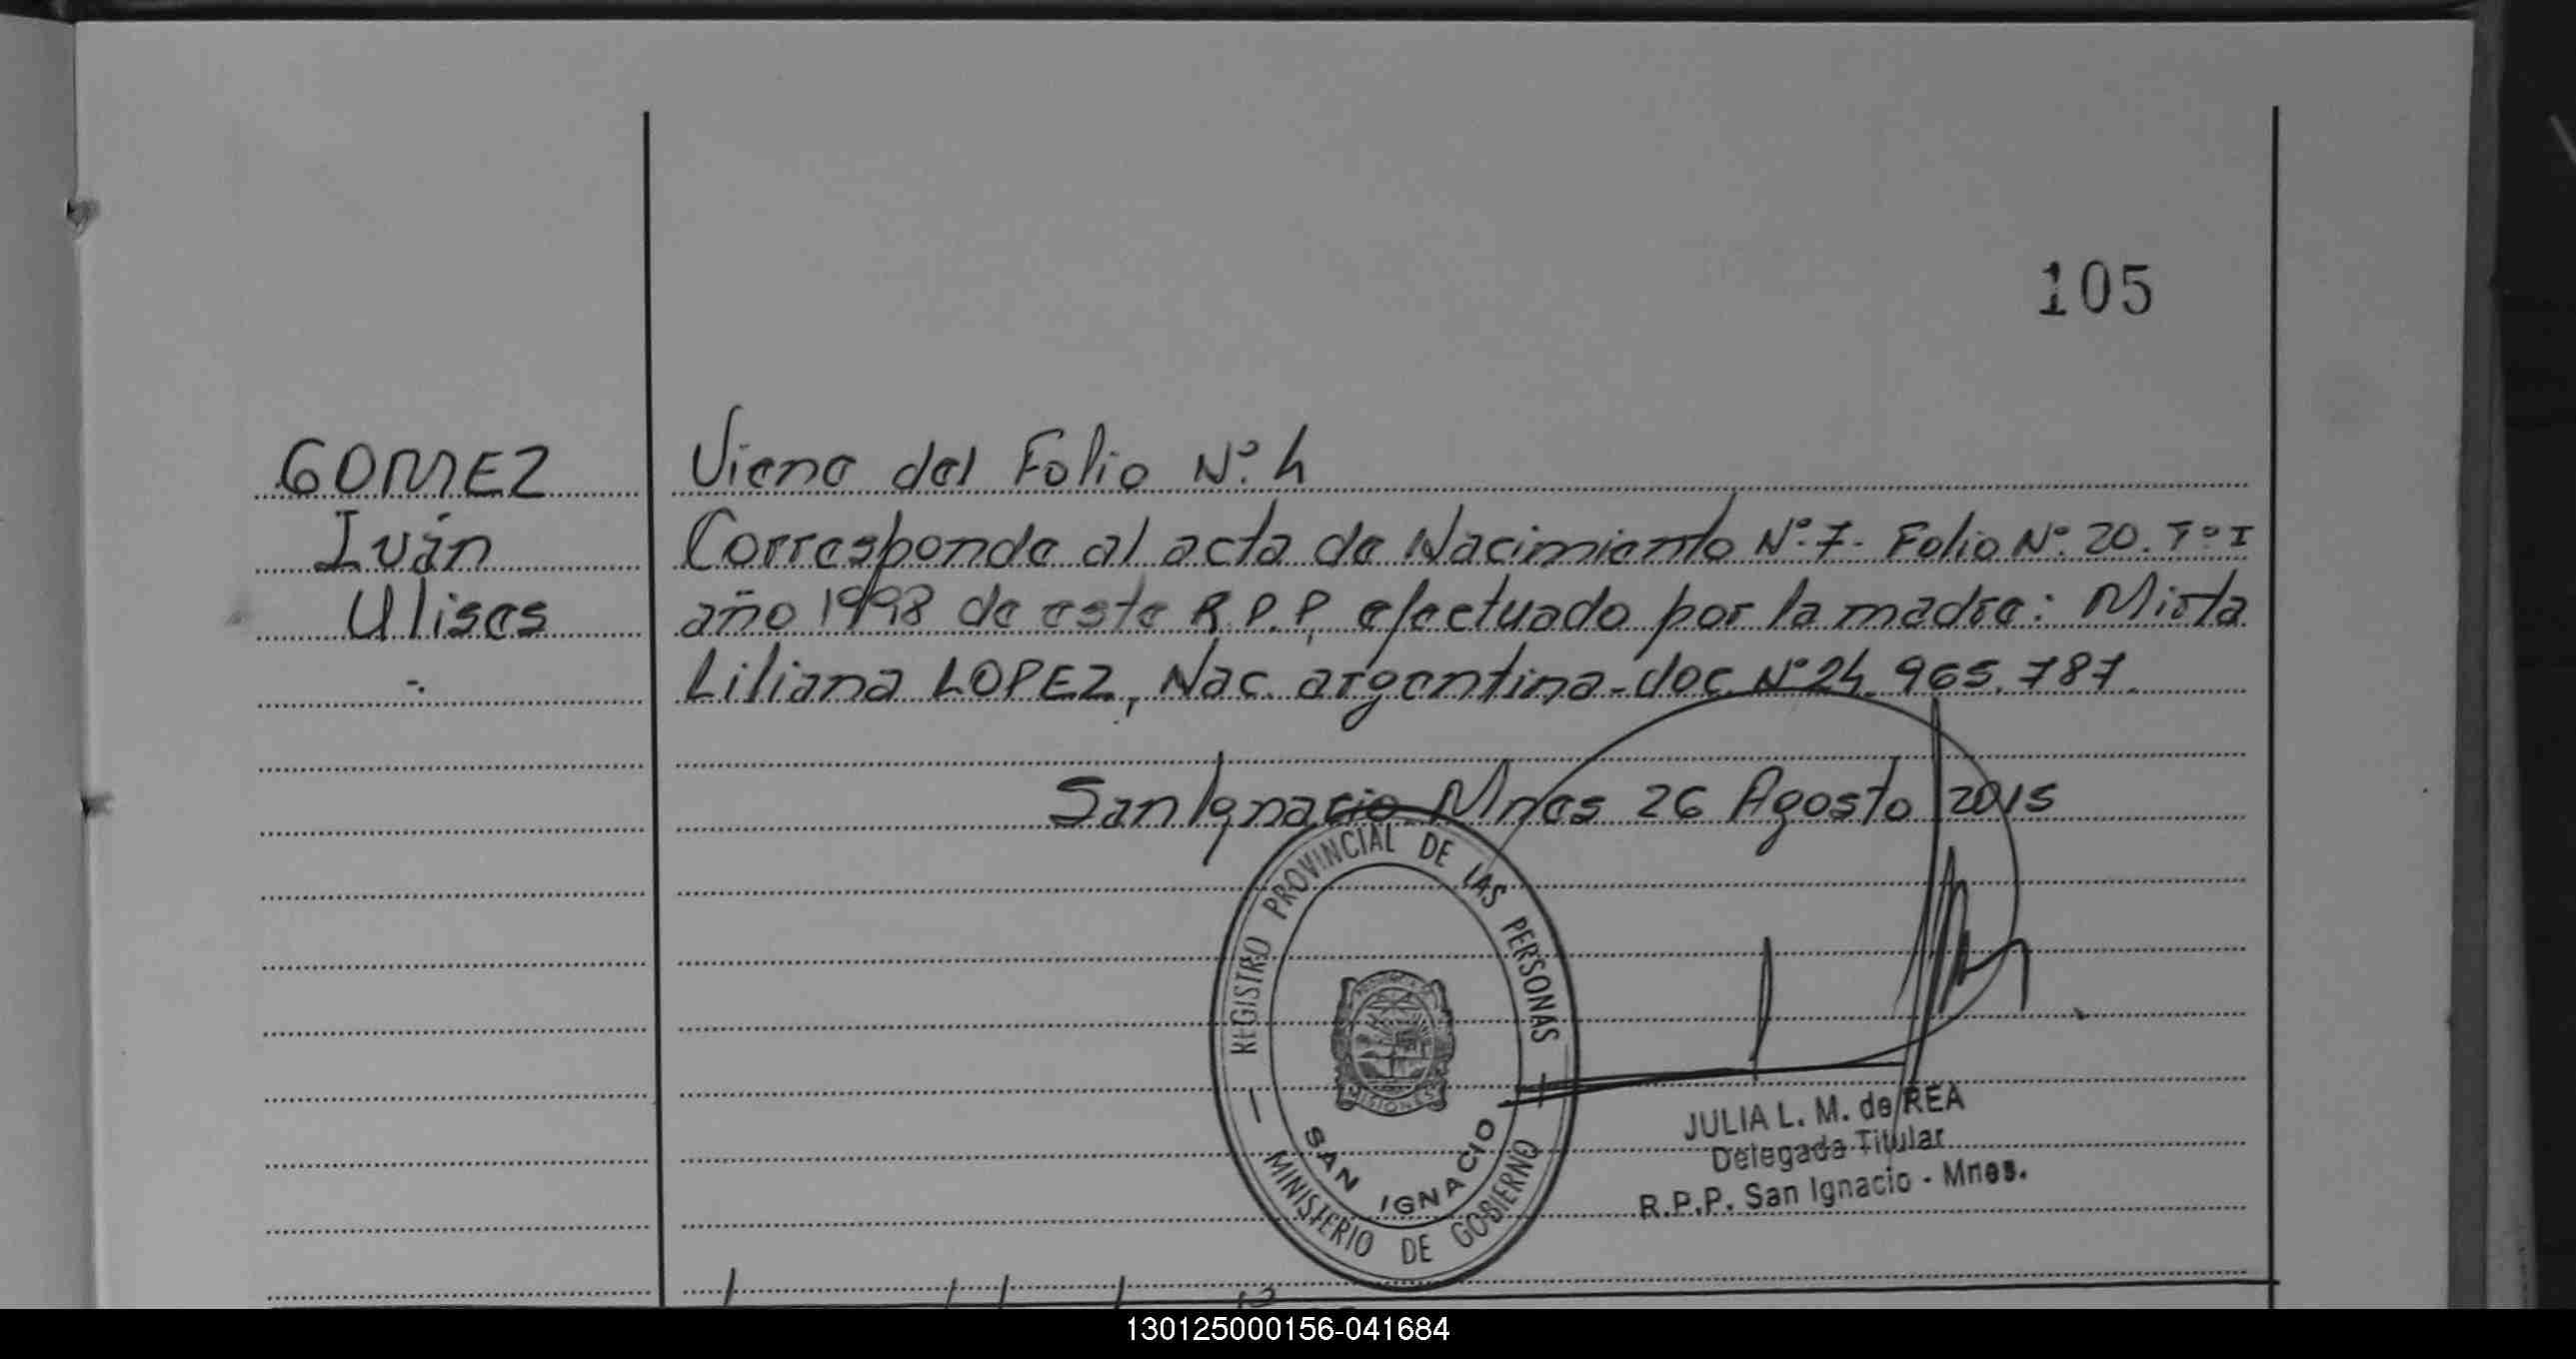 105
GOMEZ
Iván
Ulises
-.
Viene del Folio Nº. 4
Corresponde al acta de Nacimiento Nº. 7. Folio Nº. 20. Tº I
año 1998 de este R.P.P, efectuado por la madre: Mirta
Liliana LOPEZ, Nac. argentina-doc. Nº 24.965.787.
San Ignacio Mnes 26 Agosto 2015
REGISTRO PROVINCIAL DE LAS PERSONAS
MISIONES
SAN IGNACIO
MINISTERIO DE GOBIERNO
JULIA L. M. de REA
Delegada Titular
R.P.P. San Ignacio - Mnes.
130125000156-041684